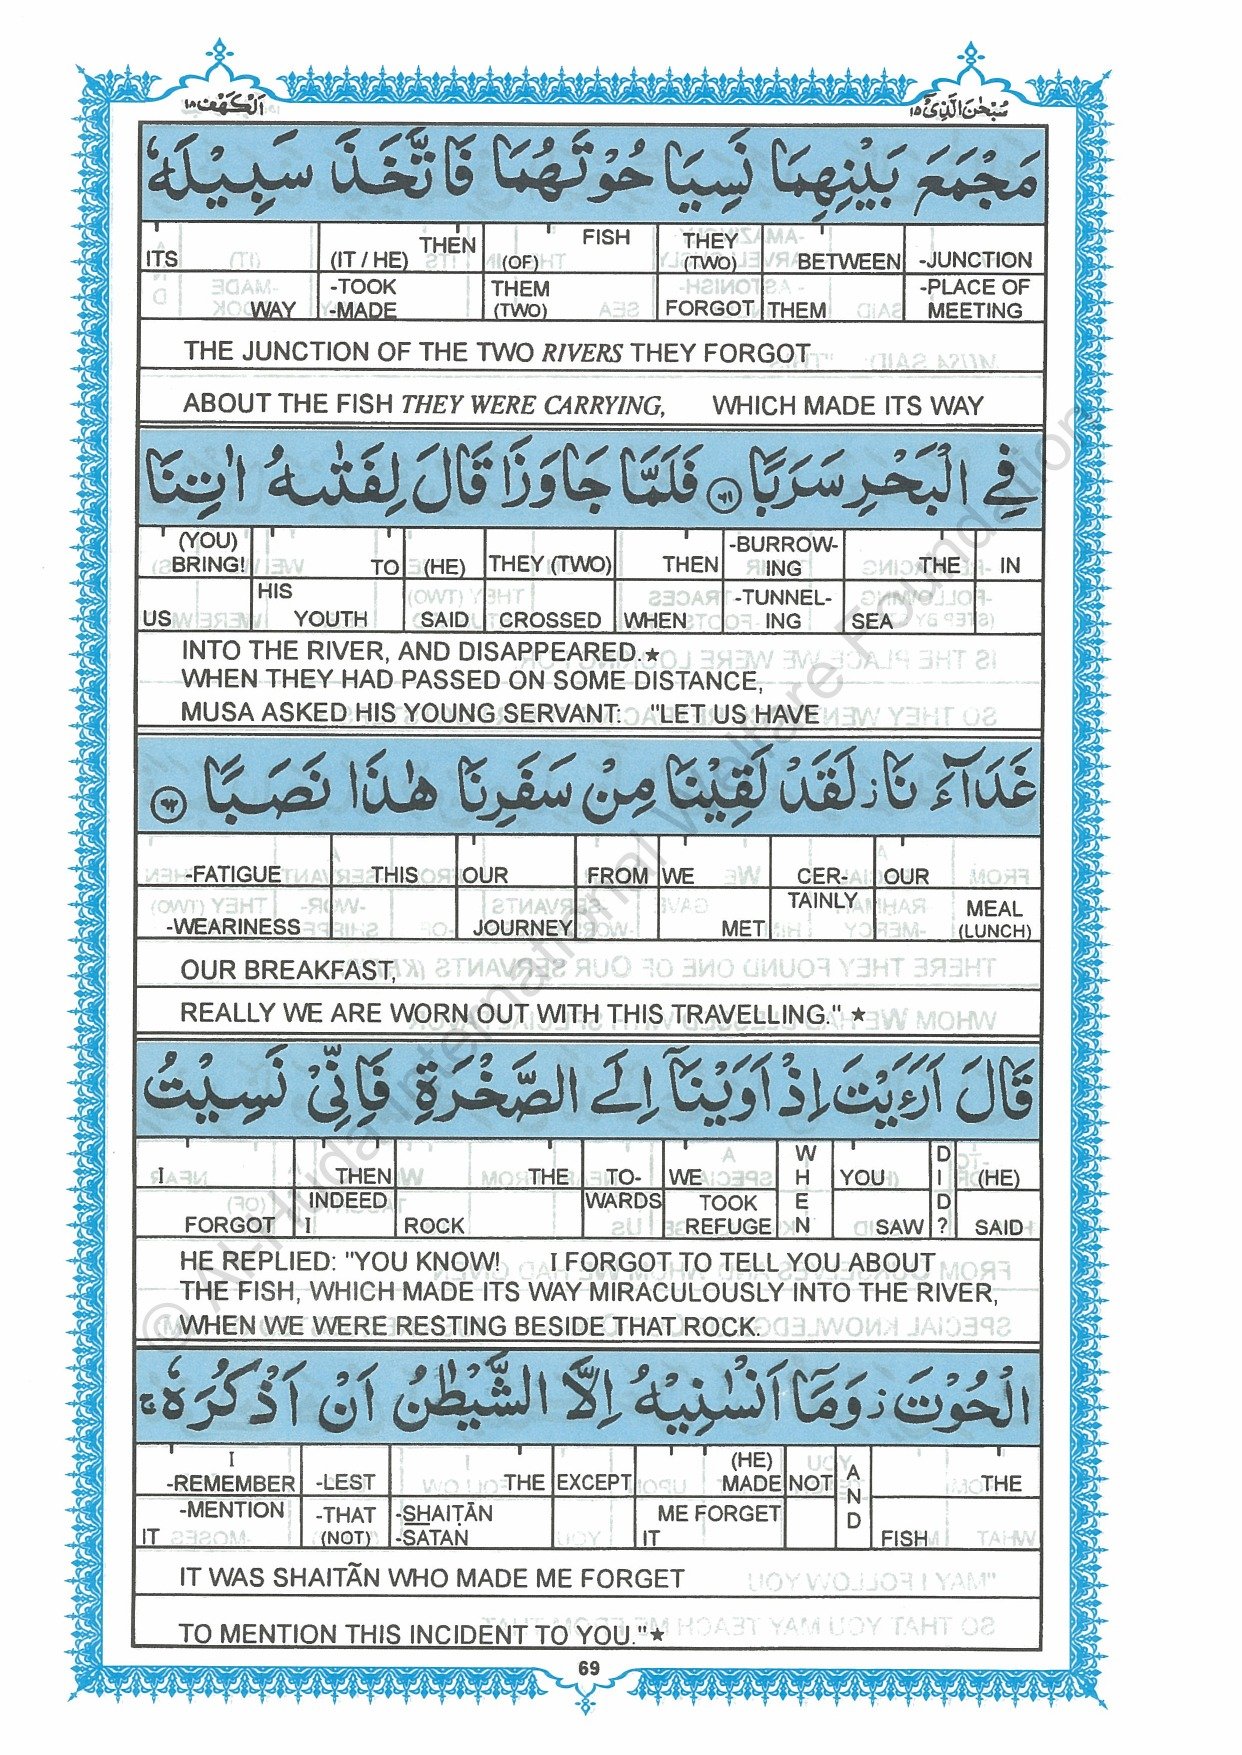 اَلْكَهْف ١٨
سُبْحٰنَ الَّذِیْۤ ١٥
مَجْمَعَ بَيْنِهِمَا نَسِيَا حُوْتَهُمَا فَاتَّخَذَ سَبِيْلَهٗ
ITS THEN (IT / HE) FISH (OF) THEY (TWO) BETWEEN -JUNCTION
WAY -TOOK -MADE THEM (TWO) FORGOT THEM -PLACE OF MEETING
THE JUNCTION OF THE TWO RIVERS THEY FORGOT
ABOUT THE FISH THEY WERE CARRYING, WHICH MADE ITS WAY
فِي الْبَحْرِ سَرَبًا ٦١ فَلَمَّا جَاوَزَا قَالَ لِفَتٰىهُ اٰتِنَا
(YOU) BRING! TO (HE) THEY (TWO) THEN -BURROW-ING THE IN
US HIS YOUTH SAID CROSSED WHEN -TUNNEL-ING SEA
INTO THE RIVER, AND DISAPPEARED.★
WHEN THEY HAD PASSED ON SOME DISTANCE,
MUSA ASKED HIS YOUNG SERVANT: "LET US HAVE
غَدَآءَنَا ز لَقَدْ لَقِيْنَا مِنْ سَفَرِنَا هٰذَا نَصَبًا ٦٢
-FATIGUE THIS OUR FROM WE CER- OUR
-WEARINESS JOURNEY MET TAINLY MEAL (LUNCH)
OUR BREAKFAST,
REALLY WE ARE WORN OUT WITH THIS TRAVELLING." ★
قَالَ اَرَءَيْتَ اِذْ اَوَيْنَاۤ اِلَى الصَّخْرَةِ فَاِنِّيْ نَسِيْتُ
I THEN THE TO- WE WHEN YOU DID? (HE)
FORGOT INDEED I ROCK WARDS TOOK REFUGE SAW SAID
HE REPLIED: "YOU KNOW! I FORGOT TO TELL YOU ABOUT
THE FISH, WHICH MADE ITS WAY MIRACULOUSLY INTO THE RIVER,
WHEN WE WERE RESTING BESIDE THAT ROCK.
الْحُوْتَ ز وَمَاۤ اَنْسٰنِيْهُ اِلَّا الشَّيْطٰنُ اَنْ اَذْكُرَهٗ ج
I -REMEMBER -LEST THE EXCEPT (HE) MADE NOT AND THE
-MENTION IT -THAT (NOT) -SHAIṬĀN -SATAN ME FORGET IT FISH
IT WAS SHAITÃN WHO MADE ME FORGET
TO MENTION THIS INCIDENT TO YOU."★
69
© Al-Huda International Welfare Foundation